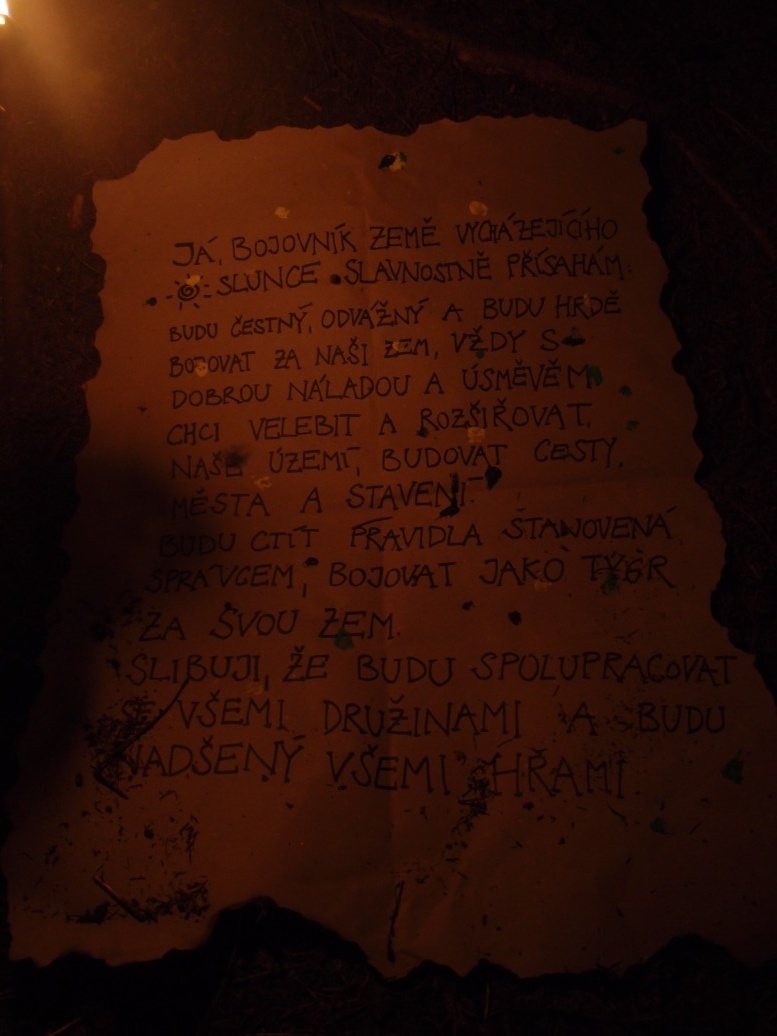 JÁ, BOJOVNÍK ZEMĚ VYCHÁZEJÍCÍHO
SLUNCE SLAVNOSTNĚ PŘÍSAHÁM:
BUDU ČESTNÝ, ODVÁŽNÝ A BUDU HRDĚ
BOJOVAT ZA NAŠI ZEM, VŽDY S
DOBROU NÁLADOU A ÚSMĚVĚM
CHCI VELEBIT A ROZŠIŘOVAT
NAŠE ÚZEMÍ, BUDOVAT CESTY,
MĚSTA A STAVENÍ.
BUDU CTÍT PRAVIDLA STANOVENÁ
SPRÁVCEM, BOJOVAT JAKO TYGR
ZA SVOU ZEM.
SLIBUJI, ŽE BUDU SPOLUPRACOVAT
SE VŠEMI DRUŽINAMI A BUDU
NADŠENÝ VŠEMI HŘAMI.